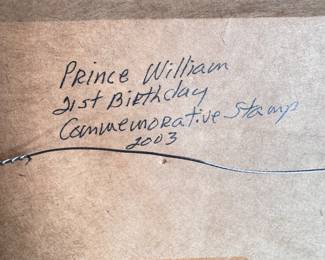 Prince William
21st Birthday
Commemorative Stamp
2003